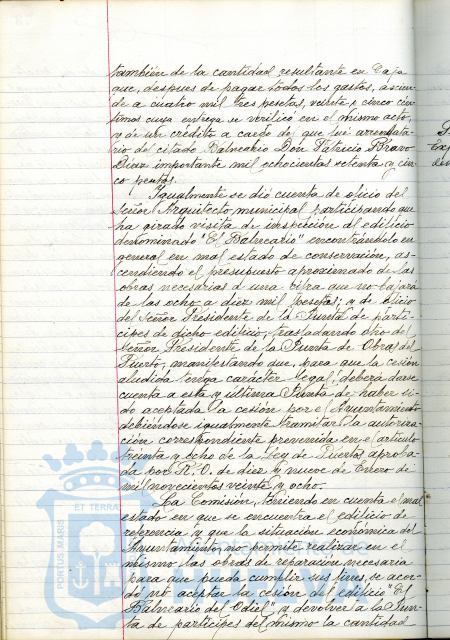 también de la cantidad resultante en Caja
que, despues de pagar todos los gastos, ascien
de a cuatro mil tres pesetas, veinte y cinco cen
timos cuya entrega se verificó en el mismo acto,
y de un crédito a cargo del que fué arrendata
rio del citado Balneario Don Patricio Bravo
Díaz importante mil ochocientas setenta y cin
co pesetas.
Igualmente se dió cuenta de oficio del
Señor Arquitecto municipal participando que
ha girado visita de inspección al edificio
denominado "El Balneario" encontrándolo en
general en mal estado de conservación, as-
cendiendo el presupuesto aproximado de las
obras necesarias a una cifra que no bajará
de las ocho a diez mil pesetas; y de oficio
del Señor Presidente de la Junta de parti-
cipes de dicho edificio, trasladando otro del
Señor Presidente de la Junta de Obras del
Puerto, manifestando que, para que la cesión
aludida tenga carácter legal, deberá darse
cuenta a esta última Junta de haber si
do aceptada la cesión por el Ayuntamiento
debiéndose igualmente tramitar la autoriza-
ción correspondiente prevenida en el artículo
treinta y ocho de la Ley de Puertos aproba
da por R.O. de diez y nueve de Enero de
mil novecientos veinte y ocho.
La Comisión, teniendo en cuenta el mal
estado en que se encuentra el edificio de
referencia y que la situación económica del
Ayuntamiento no permite realizar en el
mismo las obras de reparación necesaria
para que pueda cumplir sus fines, se acor
dó no aceptar la cesión del edificio "El
Balneario del Odiel", y devolver a la Jun-
ta de participes del mismo la cantidad
ET TERRA
PORTUS MARIS